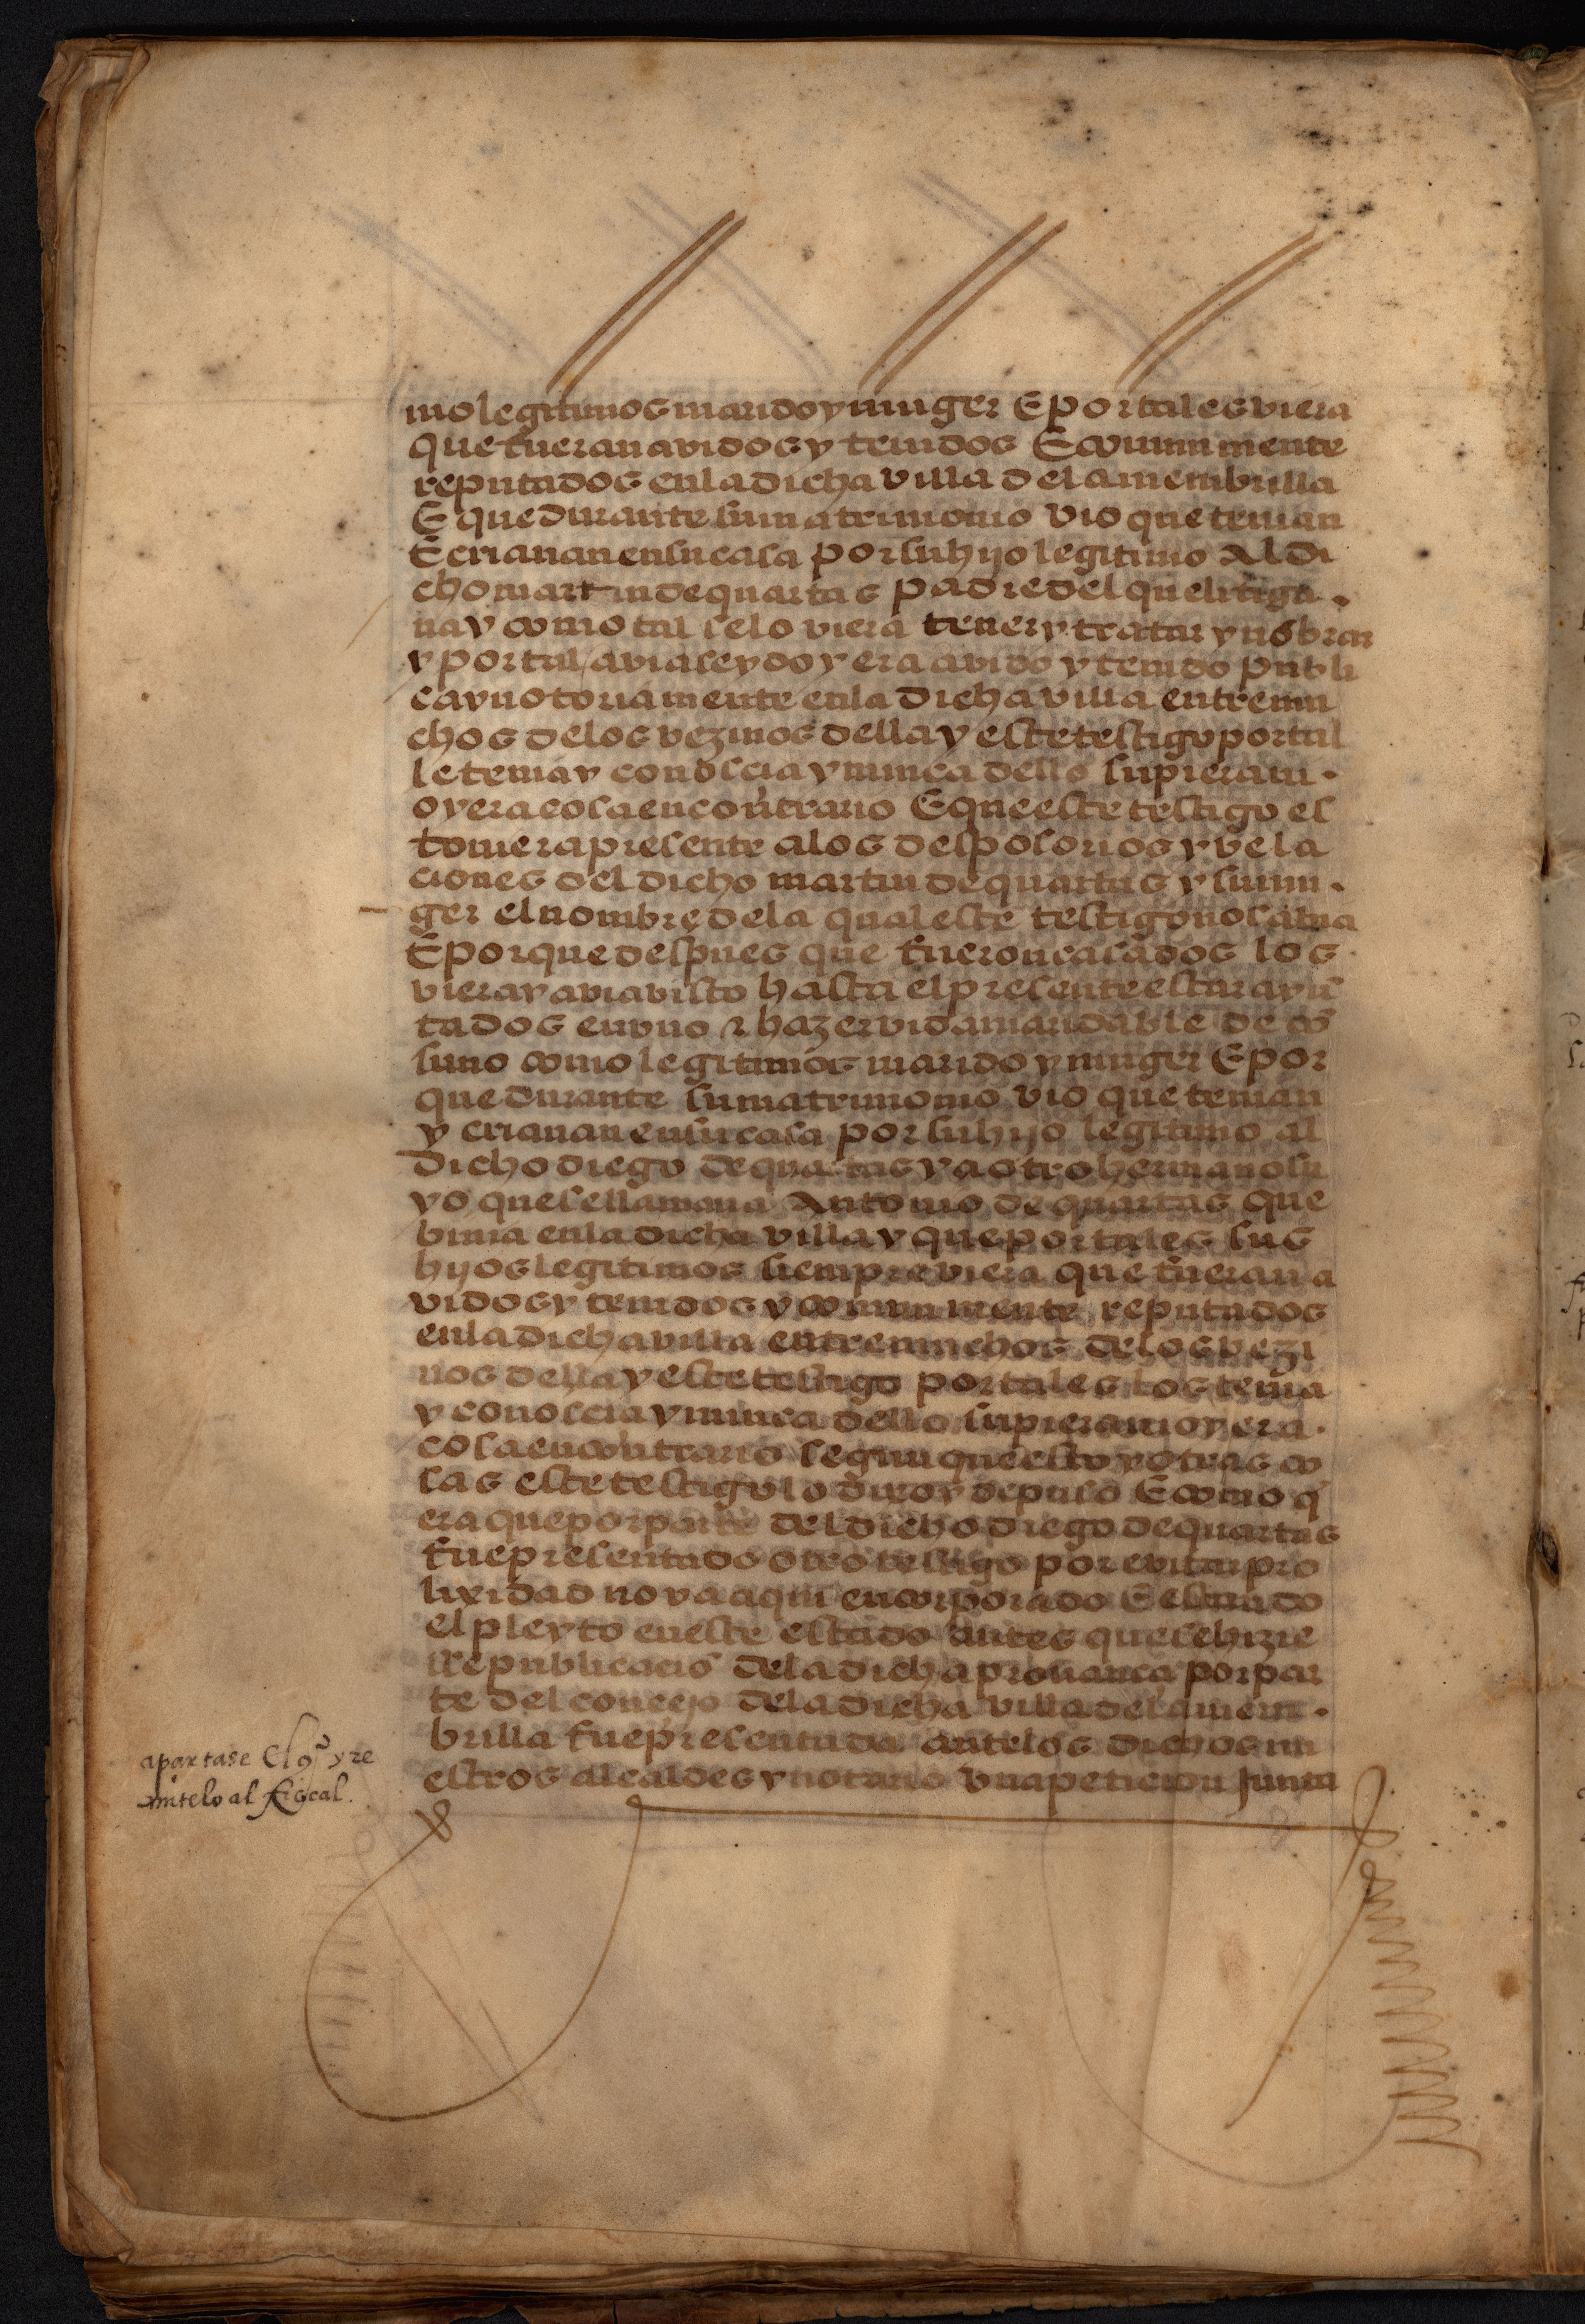 mo legitimos marido y muger E por tales viera
que fueran avidos y tenidos E comun mente
reputados en la dicha villa de la menbrilla
E que durante su matrimonio vio que tenian
E criauan en su casa por su hijo legitimo Al di
cho martin de quartas padre del que litiga.
ua y como tal se lo viera tener y tratar y nōbrar
y por tal avia seydo y era avido y tenido publi
ca y notoriamente en la dicha villa entre mu
chos de los vezinos della y este testigo por tal
le tenia y conoscia y nunca dello supiera ni.
oyera cosa en contrario E que este testigo es
touiera presente a los desposorios y vela
ciones del dicho martin de quartas y su mu.
ger el nombre de la qual este testigo no sabia
E porque despues que fueron casados los
viera y avia visto hasta el presente estar ayū
tados en vno & hazer vida maridable de cō
suno como legitimos marido y muger E por
que durante su matrimonio vio que tenian
y criauan en su casa por su hijo legitimo al
dicho diego de quartas y a otro hermano su
yo que se llamaua Antonio de quartas que
biuia en la dicha villa y que por tales sus
hijos legitimos siempre viera que fueran a
vidos y tenidos y comun mente reputados
en la dicha villa entre muchos de los vezi
nos della y este testigo por tales los tenia
y conoscia y nunca dello supiera ni oyera.
cosa en contrario segun que esto y otras co
sas este testigo lo dixo y depuso E como q̄
era que por parte del dicho diego de quartas
fue presentado otro testigo por evitar pro
lixidad no va aqui encorporado E estando
el pleyto en este estado antes que se hizie
sse publicaciō de la dicha prouanca por par
te del concejo de la dicha villa de la mem.
brilla fue presentada ante los dichos nu
estros alcaldes y notario vna peticion Junta
apartase El qº y re
mitelo al fiscal.